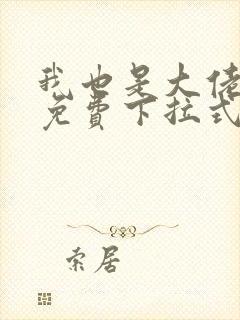 我也是大佬
免费下拉式
索居